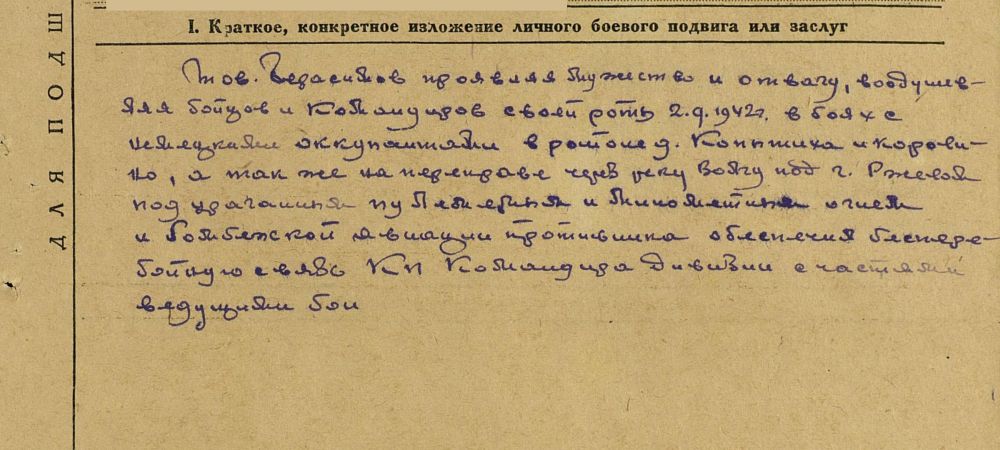 ДЛЯ ПОДШ
I. Краткое, конкретное изложение личного боевого подвига или заслуг
Тов. Герасимов проявляя мужество и отвагу, воодушев-
ляя бойцов и командиров своей роты 2.9.1942г. в боях с
немецкими оккупантами в районе д. Коптиха и Корови-
но, а так же на переправе через реку Волгу под г. Ржевом
под ураганным пулеметным и минометным огнем
и бомбежкой авиации противника обеспечил беспере-
бойную связь КП Командира Дивизии с частями
ведущими бои